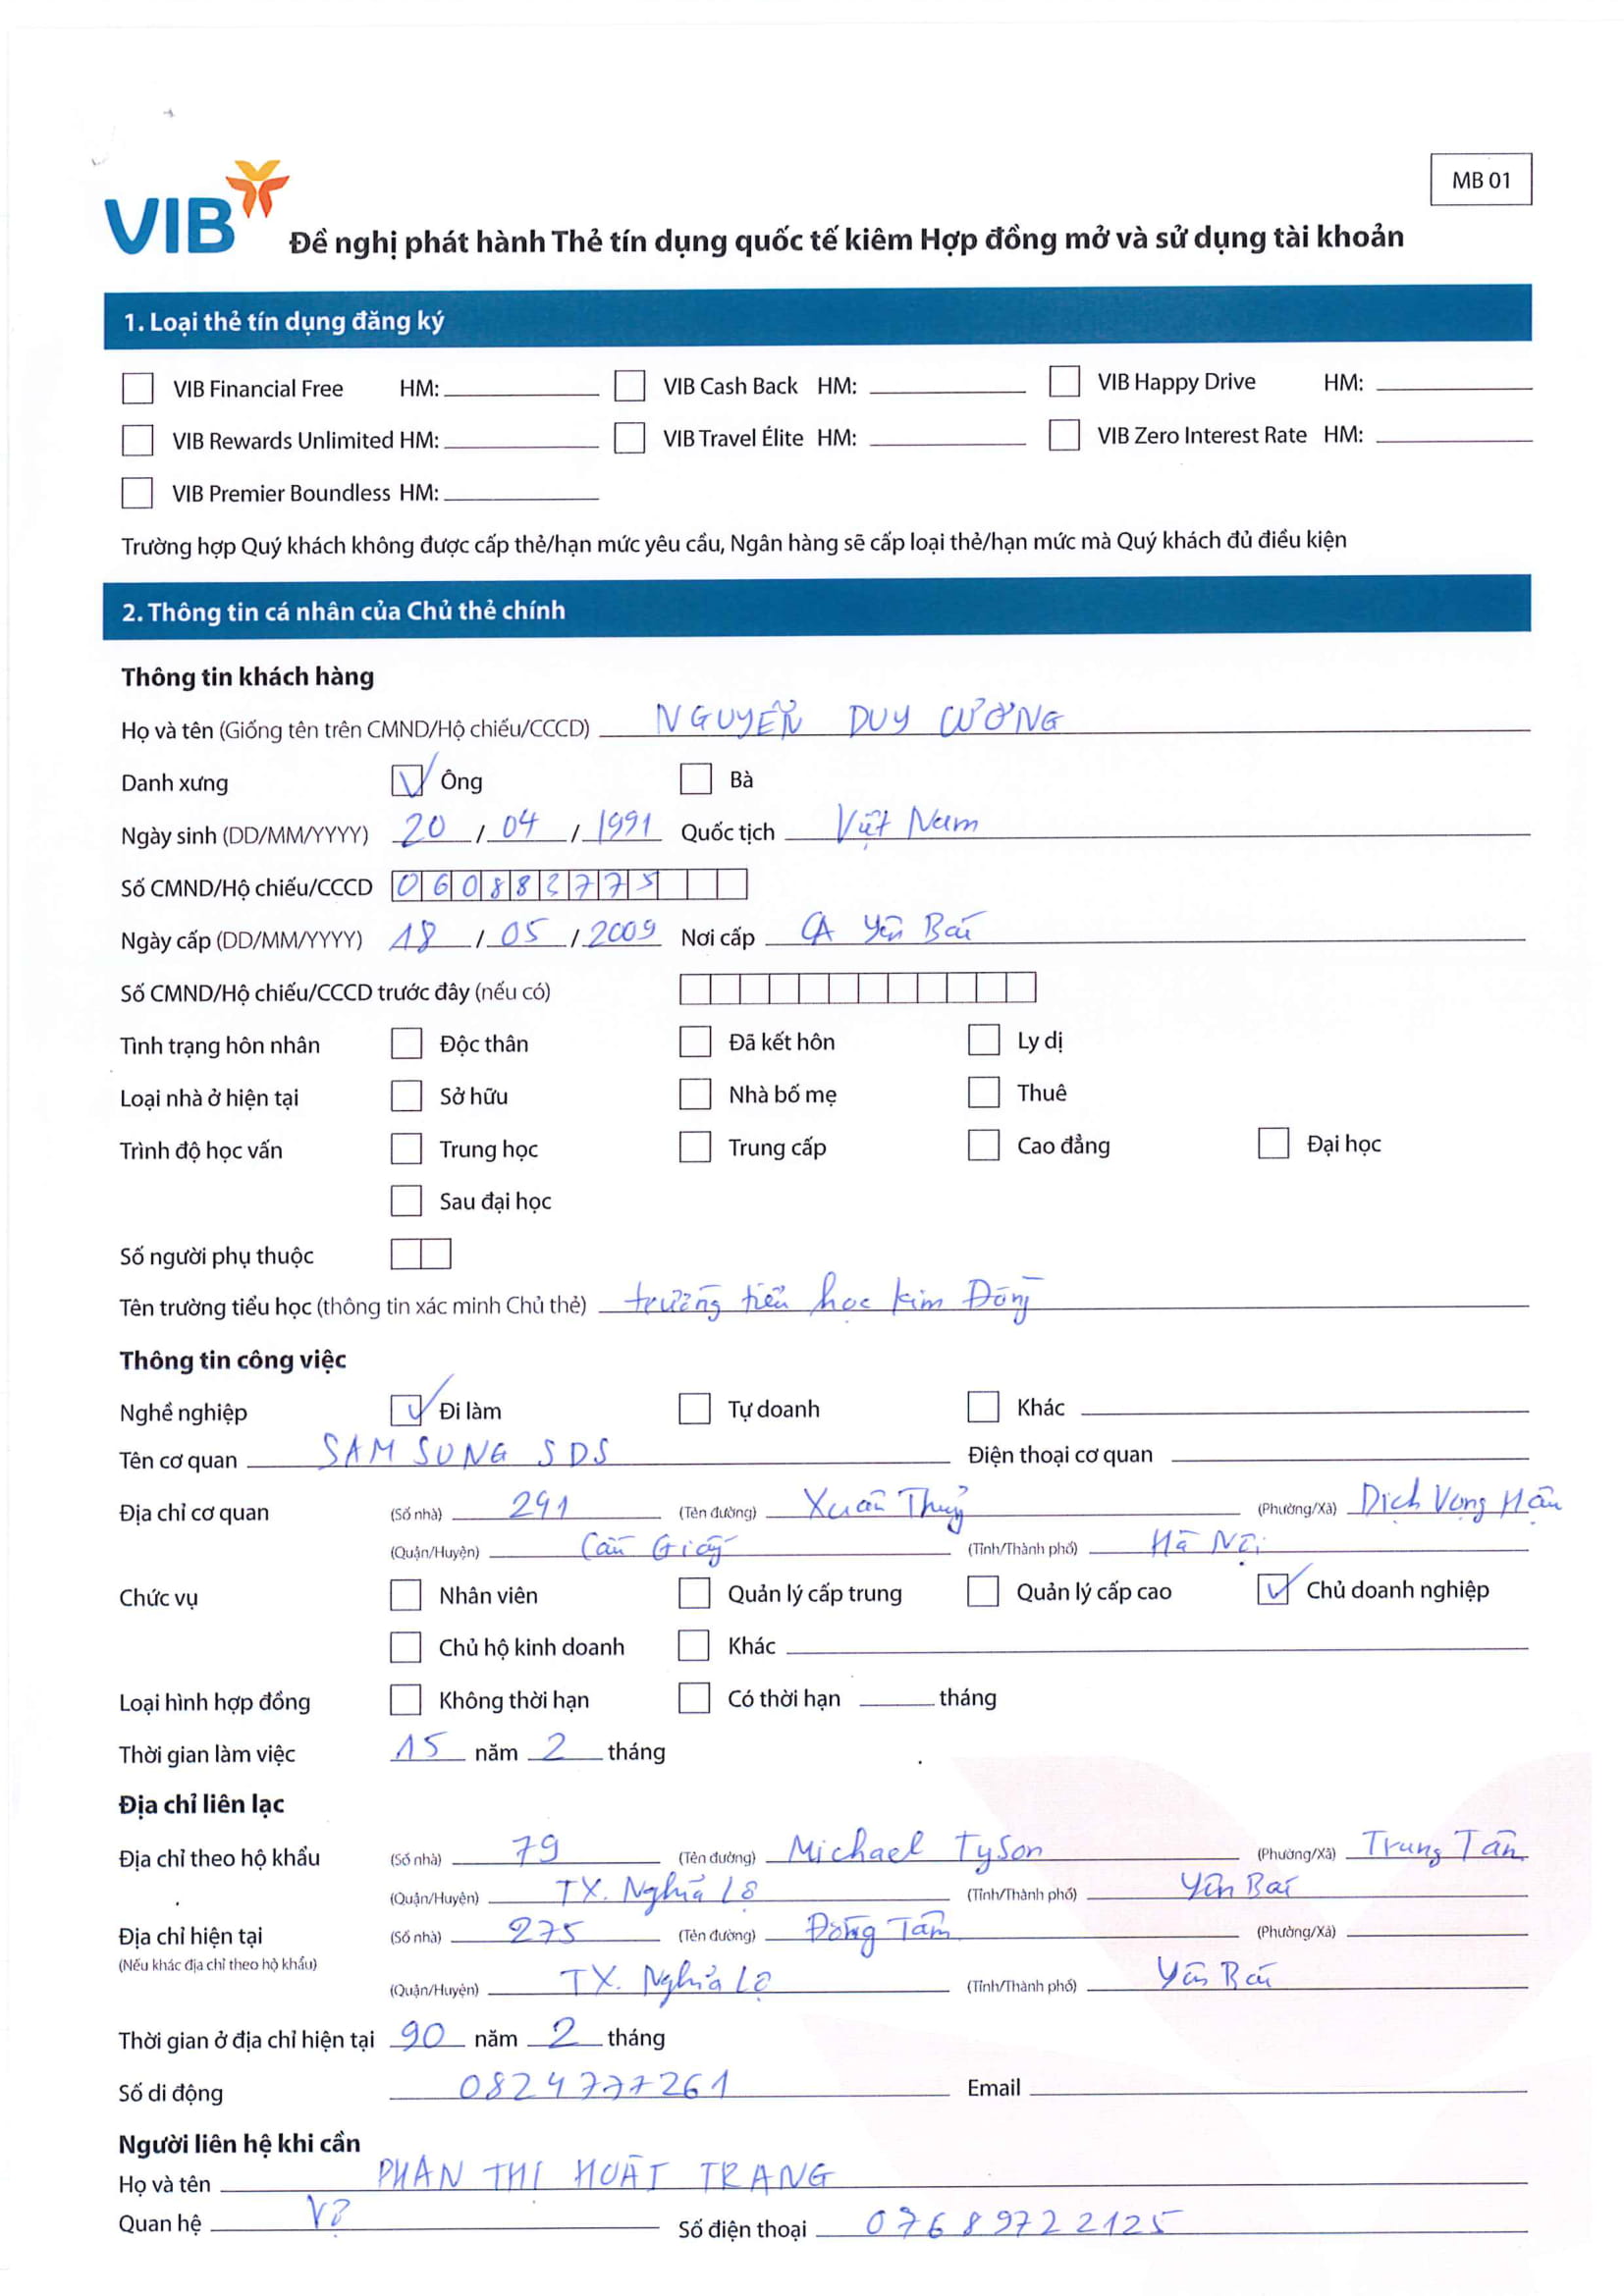 MB 01
VIB
Đề nghị phát hành Thẻ tín dụng quốc tế kiêm Hợp đồng mở và sử dụng tài khoản
1. Loại thẻ tín dụng đăng ký
VIB Financial Free HM: VIB Cash Back HM: VIB Happy Drive HM:
VIB Rewards Unlimited HM: VIB Travel Élite HM: VIB Zero Interest Rate HM:
VIB Premier Boundless HM:
Trường hợp Quý khách không được cấp thẻ/hạn mức yêu cầu, Ngân hàng sẽ cấp loại thẻ/hạn mức mà Quý khách đủ điều kiện
2. Thông tin cá nhân của Chủ thẻ chính
Thông tin khách hàng
Họ và tên (Giống tên trên CMND/Hộ chiếu/CCCD) NGUYỄN DUY CƯƠNG
Danh xưng Ông Bà
Ngày sinh (DD/MM/YYYY) 20 / 04 / 1991 Quốc tịch Việt Nam
Số CMND/Hộ chiếu/CCCD 060882775
Ngày cấp (DD/MM/YYYY) 18 / 05 / 2009 Nơi cấp CA Yên Bái
Số CMND/Hộ chiếu/CCCD trước đây (nếu có)
Tình trạng hôn nhân Độc thân Đã kết hôn Ly dị
Loại nhà ở hiện tại Sở hữu Nhà bố mẹ Thuê
Trình độ học vấn Trung học Trung cấp Cao đẳng Đại học
Sau đại học
Số người phụ thuộc
Tên trường tiểu học (thông tin xác minh Chủ thẻ) trường tiểu học Kim Đồng
Thông tin công việc
Nghề nghiệp Đi làm Tự doanh Khác
Tên cơ quan SAMSUNG SDS Điện thoại cơ quan
Địa chỉ cơ quan (Số nhà) 291 (Tên đường) Xuân Thuỷ (Phường/Xã) Dịch Vọng Hậu
(Quận/Huyện) Cầu Giấy (Tỉnh/Thành phố) Hà Nội
Chức vụ Nhân viên Quản lý cấp trung Quản lý cấp cao Chủ doanh nghiệp
Chủ hộ kinh doanh Khác
Loại hình hợp đồng Không thời hạn Có thời hạn tháng
Thời gian làm việc 15 năm 2 tháng
Địa chỉ liên lạc
Địa chỉ theo hộ khẩu (Số nhà) 79 (Tên đường) Michael Tyson (Phường/Xã) Trung Tâm
(Quận/Huyện) TX. Nghĩa Lộ (Tỉnh/Thành phố) Yên Bái
Địa chỉ hiện tại (Số nhà) 275 (Tên đường) Đồng Tâm (Phường/Xã)
(Nếu khác địa chỉ theo hộ khẩu)
(Quận/Huyện) TX. Nghĩa Lộ (Tỉnh/Thành phố) Yên Bái
Thời gian ở địa chỉ hiện tại 90 năm 2 tháng
Số di động 0824777261 Email
Người liên hệ khi cần
Họ và tên PHAN THI HOÀI TRANG
Quan hệ Vợ Số điện thoại 07689722125